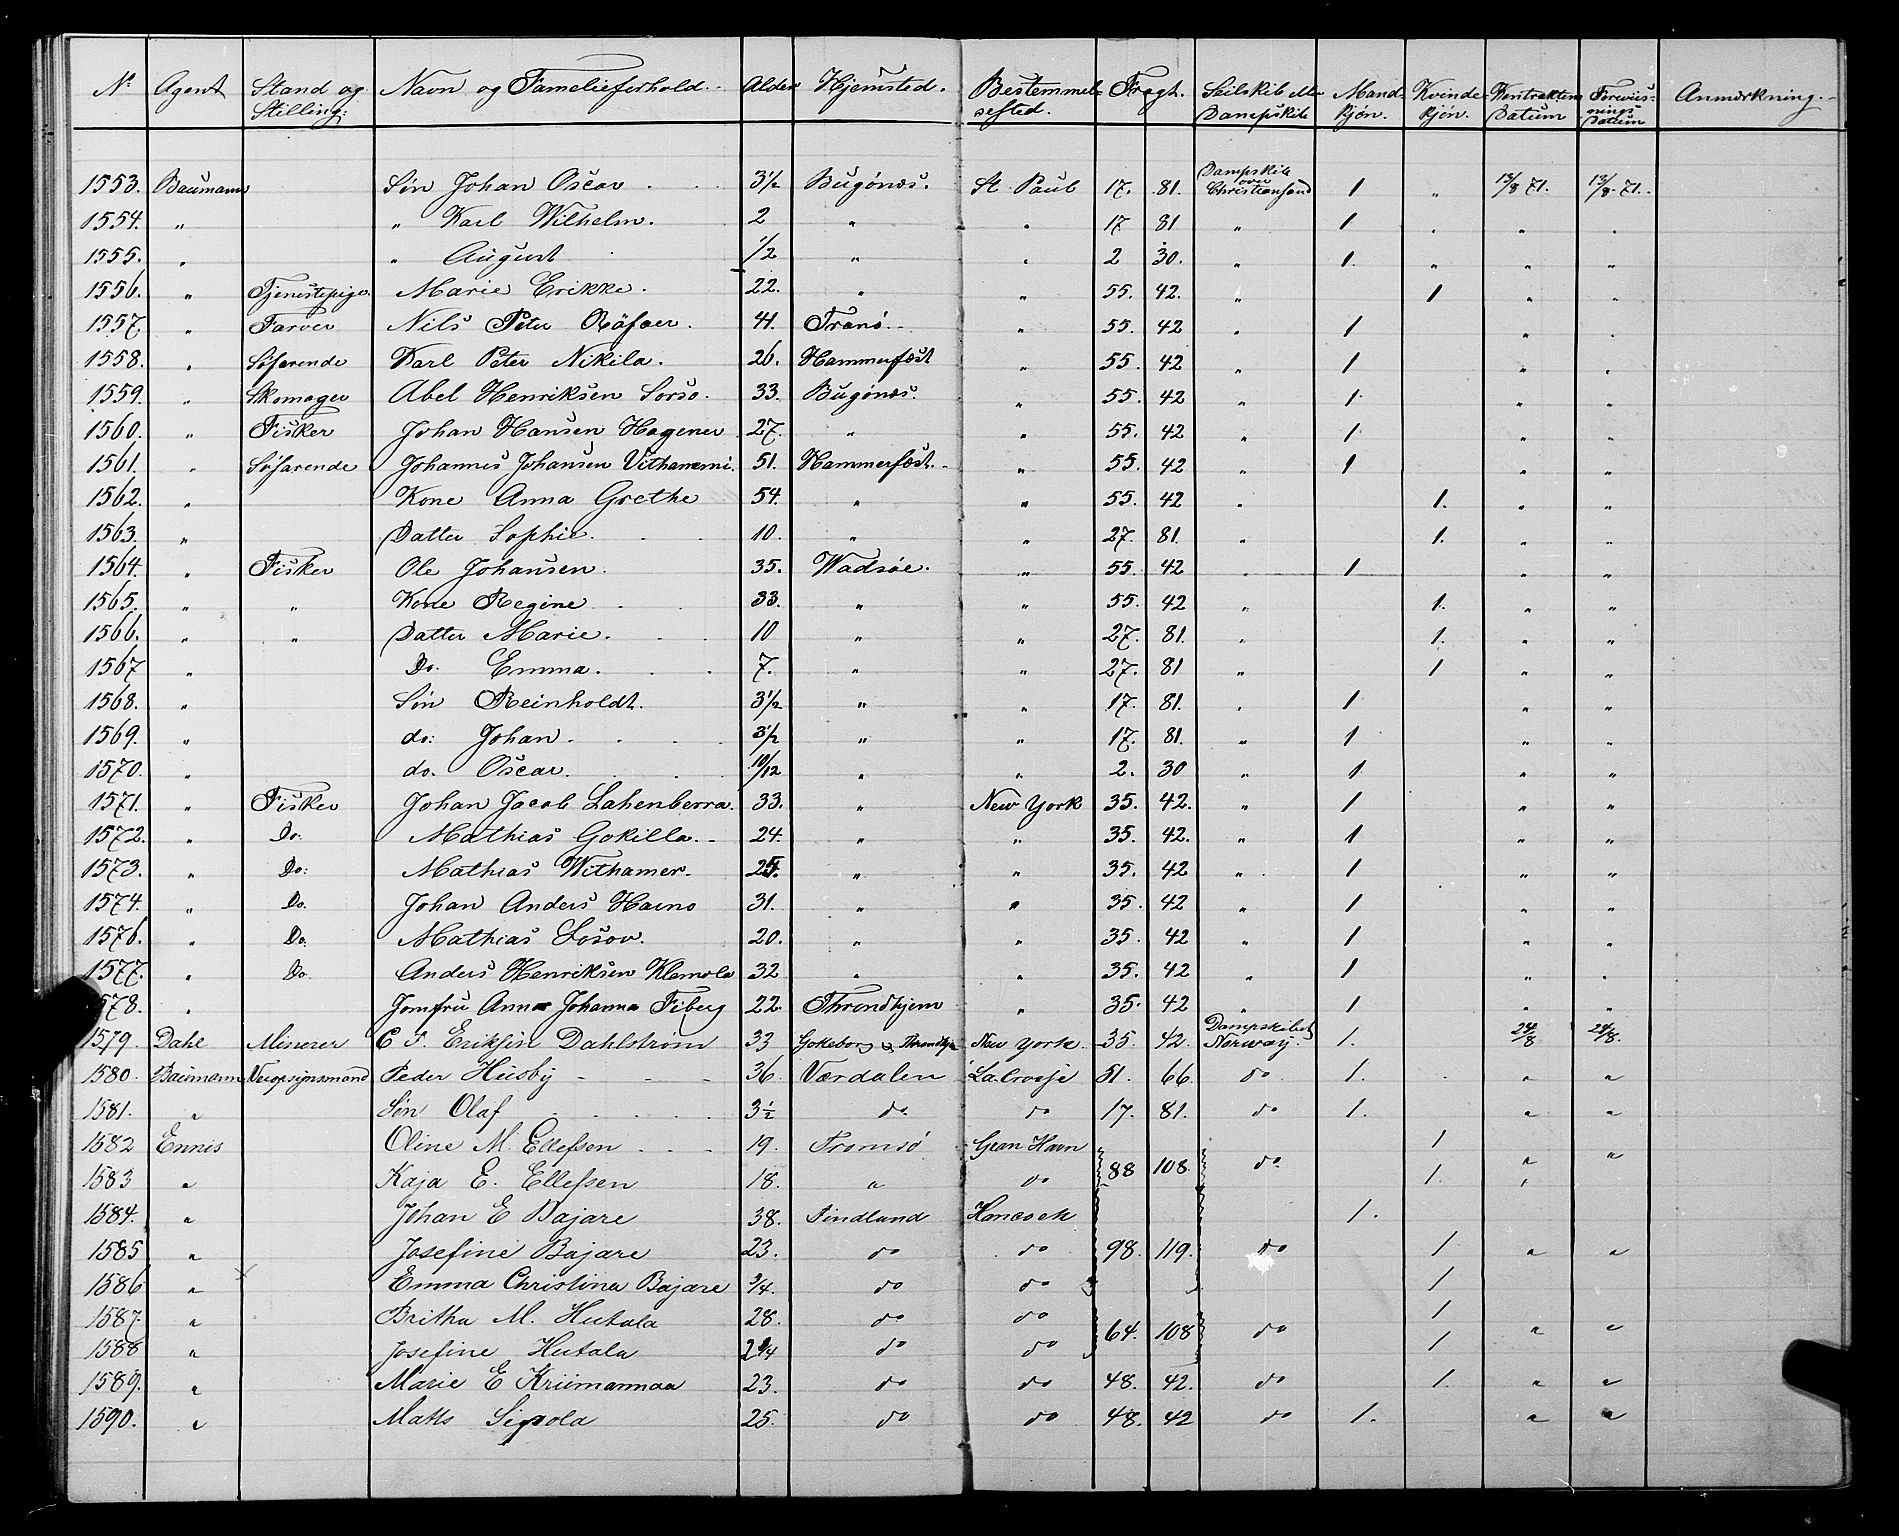 No Agent Stand og Stilling: Navn og Famelieforhold. Alder Hjemsted. Bestemmelsessted. Fragt. Seilskib eller Dampskib Mandkjøn. Kvindekjøn. Kontraktens Datum Forevisnings Datum Anmærkning.
1553. Baumann Søn Johan Oscar 3½ Bugønæs. St Paul 17. 81. Dampskib over Christiansand 1 " 13/8 71. 13/8 71.
1554. " " Karl Wilhelm. 2 " " 17 81 " 1 " " "
1555. " " August 1/2 " " 2 30. " 1. " " "
1556. " Tjenestepige. Marie Erikke. 22. " " 55. 42. " 1 " "
1557. " Farver Nils Peter Räfaer. 41. Tranö. " 55. 42 " 1 " "
1558. " Søfarende Karl Peter Nikila. 26. Hammerfest " 55. 42 " 1 " "
1559. " Skomager Abel Henriksen Sorso. 33. Bugönæs. " 55. 42 " 1. " "
1560. " Fisker Johan Hansen Hagener 27. " " 55. 42 " 1. " "
1561. " Søfarende Johannes Johansen Vithanemi. 51. Hammerfest. " 55. 42 " 1 " "
1562. " Kone Anna Grethe 54. " " 55. 42 " 1. " "
1563. " Datter Sophie. 10. " " 27. 81. " 1. " "
1564. " Fisker Ole Johansen. 35. Wadsöe. " 55. 42 " 1 " "
1565. " " Kone Regine 33. " " 55. 42 " 1. " "
1566. " " Datter Marie. 10 " " 27. 81. " 1. " "
1567 " Do. Emma. 7. " " 27. 81 " 1 " "
1568. " Søn Reinholdt. 3½ " " 17. 81. " 1 " "
1569. " do: Johan. 3½ " " 17. 81. " 1 " "
1570. " do. Oscar. 10/12 " " 2. 30 " 1 " "
1571. " Fisker Johan Jacob Lahenberra. 33. " New York 35. 42. " 1 " "
1572. " Do. Mathias Gokilla. 24. " " 35. 42. " 1 " "
1573. " Do: Mathias Withamer. 25. " " 35. 42 " 1 " "
1574. " Do. Johan Anders Harno 31. " " 35. 42 " 1 " "
1576. " Do. Mathias Sosov. 20. " " 35. 42 " 1 " "
1577. " Do. Anders Henriksen Klemola 32 " " 35. 42 " 1 " "
1578. " Jomfru Anna Johanna Fiberg 22. Throndhjem " 35. 42 " 1 " "
1579. Dahl Minerer C F. Eriksin Dahlstrøm 33 Gøteborg New York 35. 42. Dampskibet Norway. 1. 24/8 24/8.
1580. Baumann Veiopsynsmand Peder Husby 36. Værdalen LaCrosse 51. 66. do 1. " "
1581. " Søn Olaf 3½ do. do 17. 81. do 1. " "
1582 Ennis Oline M. Ellefsen 19. Tromsö Gran Havn 1
1583 " Kaja E. Ellefsen 18. " do 88 108 do. 1. " "
1584. " Johan E Bajare 38. Findland Hancock 1.
1585 " Josefine Bajare 23. do do 98. 119. do 1 " "
1586 " Emma Christina Bajare 3/4. do do 1
1587. " Britha M. Hutala 28. do do 1
1588 " Josefine Hutala 2¼ do do 64. 108 do 1 " "
1589. " Marie E Kriimannaa 23. do do 48. 42. do 1. " "
1590. " Matts Sipola 25. do do 48. 42 do 1. " "